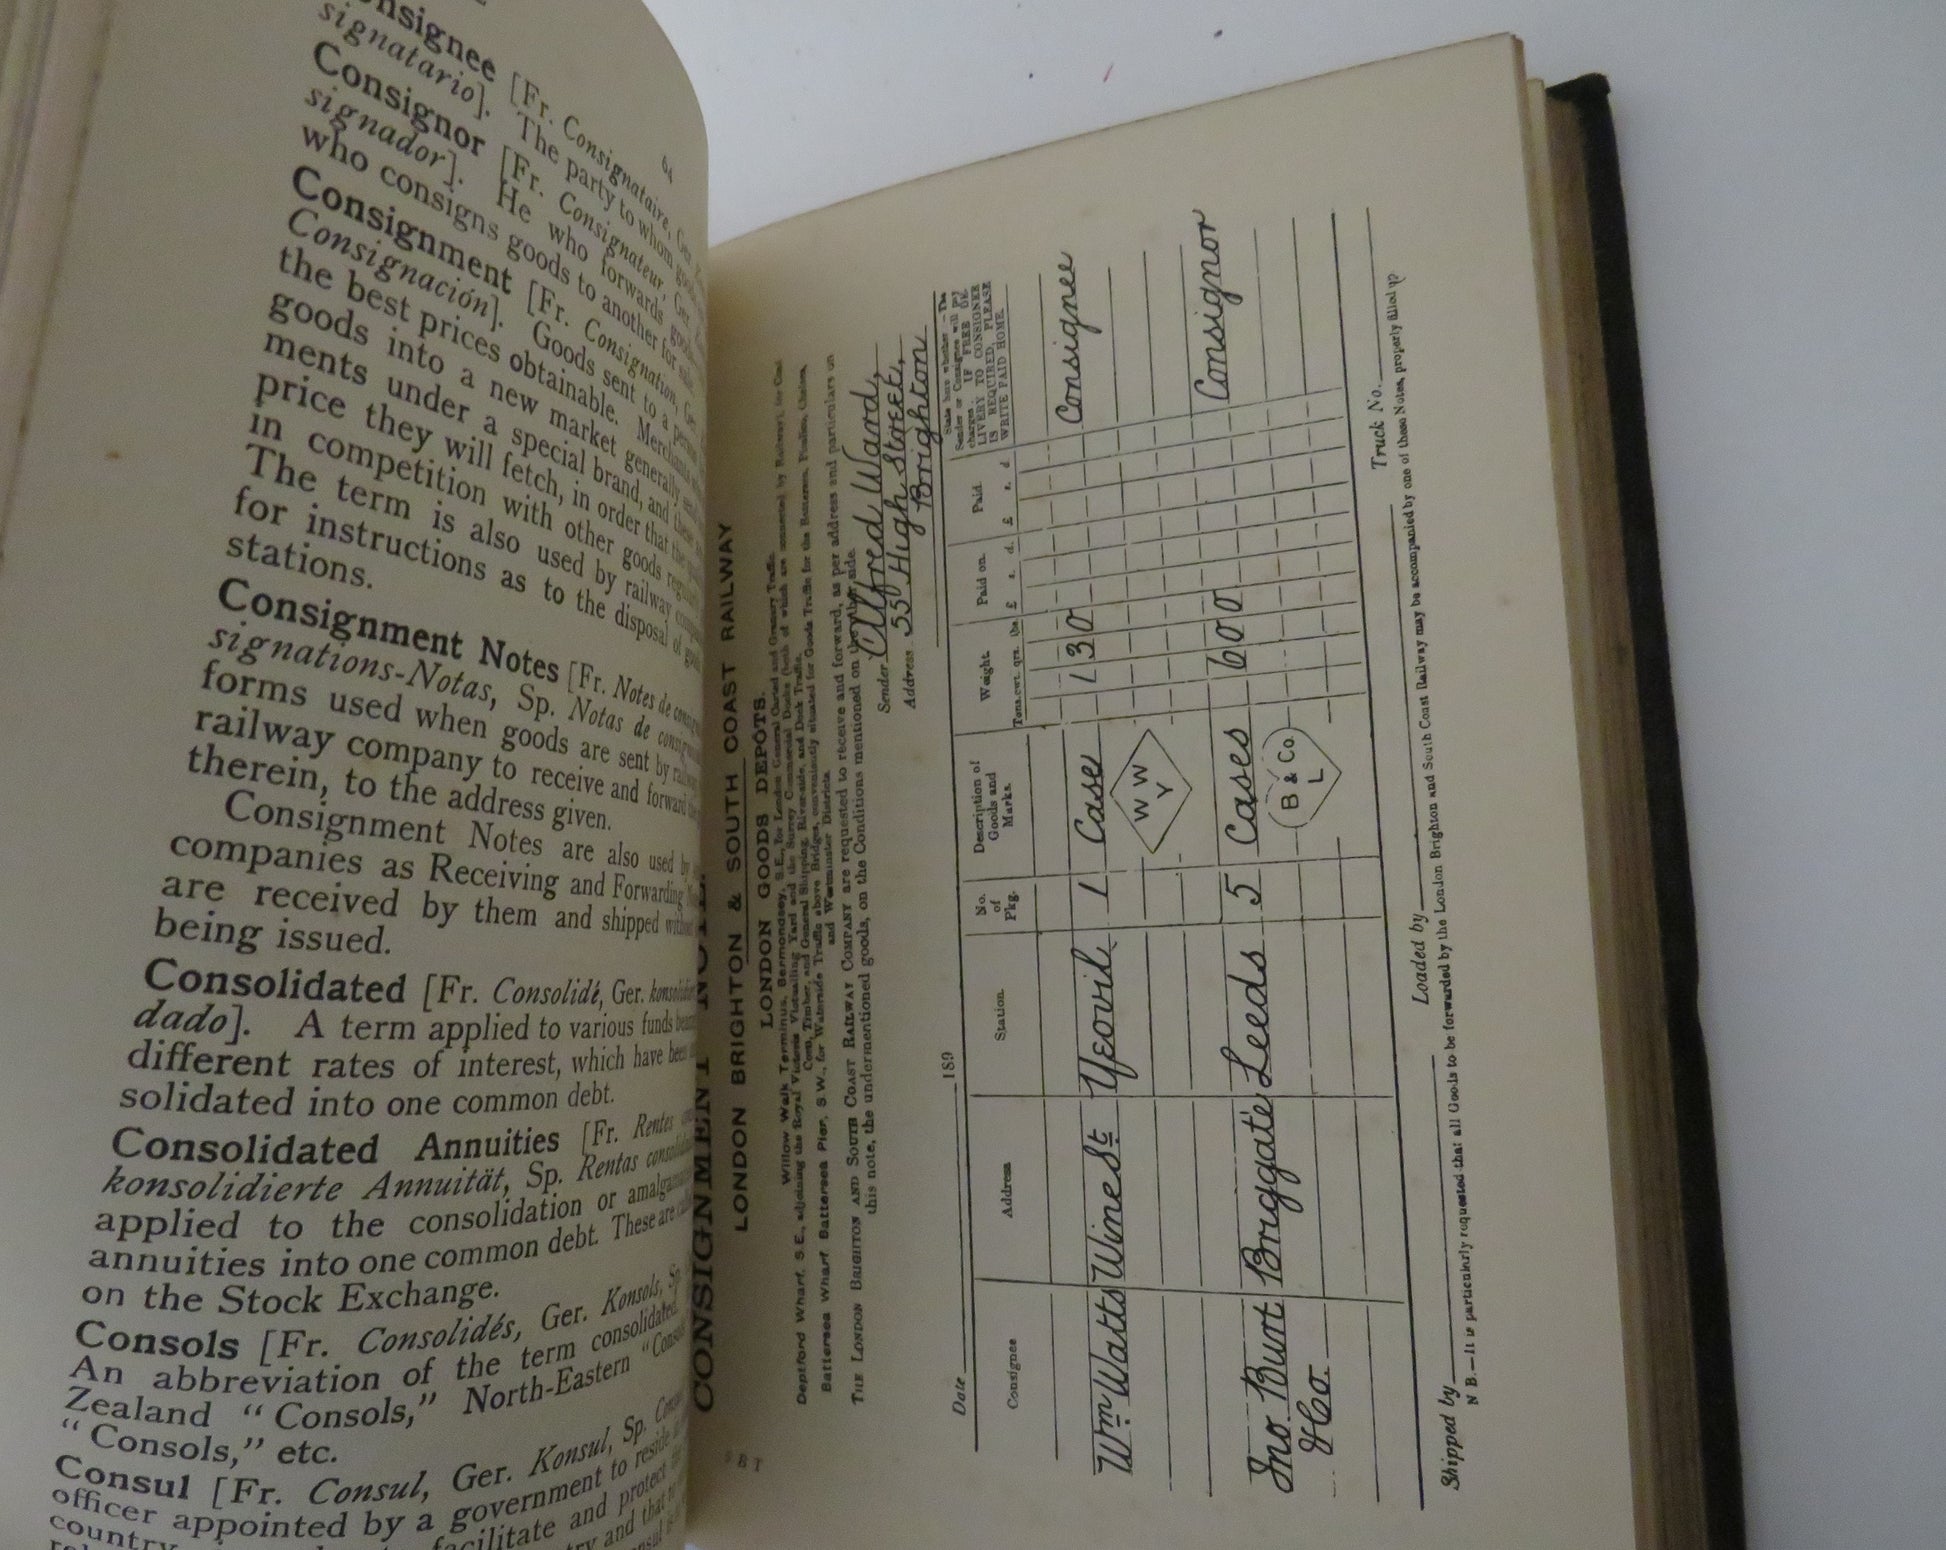 64
Consignee [Fr. Consignataire, Ger.
signatario]. The party to whom goods
Consignor [Fr. Consignateur, Ger.
signador]. He who forwards goods
who consigns goods to another for sale.
Consignment [Fr. Consignation, Ger.
Consignación]. Goods sent to a person
the best prices obtainable.
goods into a new market generally
ments under a special brand, and
price they will fetch, in order that the
in competition with other goods
The term is also used by railway
for instructions as to the disposal of
stations.
Consignment Notes [Fr. Notes de
signations-Notas, Sp. Notas de
forms used when goods are sent by
railway company to receive and forward
therein, to the address given.
Consignment Notes are also used by
companies as Receiving and Forwarding
are received by them and shipped
being issued.
Consolidated [Fr. Consolidé, Ger.
dado]. A term applied to various funds
different rates of interest, which have been
solidated into one common debt.
Consolidated Annuities [Fr. Rentes
konsolidierte Annuität, Sp. Rentas
applied to the consolidation or
annuities into one common debt. These are
on the Stock Exchange.
Consols [Fr. Consolidés, Ger. Konsols, Sp.
An abbreviation of the term consolidated.
Zealand “Consols,” North-Eastern
“Consols,” etc.
Consul [Fr. Consul, Ger. Konsul, Sp.
officer appointed by a government to reside
country
CONSIGNMENT NOTE.
LONDON BRIGHTON & SOUTH COAST RAILWAY
LONDON GOODS DEPÔTS.
Willow Walk Terminus, Bermondsey, S.E., for London General Carted and Granary Traffic.
Deptford Wharf, S.E., adjoining the Royal Victoria Victualling Yard and the Surrey Commercial Docks (both of which are connected by Railway), for Coal
Corn, Timber, and General Shipping, River-side, and Dock Traffic.
Battersea Wharf Battersea Pier, S.W., for Waterside Traffic above Bridges, conveniently situated for Goods Traffic for the Battersea, Pimlico, Chelsea,
and Westminster Districts.
THE LONDON BRIGHTON AND SOUTH COAST RAILWAY COMPANY are requested to receive and forward, as per address and particulars on
this note, the undermentioned goods, on the Conditions mentioned on the other side.
Sender Alfred Ward,
Address 55 High Street,
Brighton
Date 189
Consignee Address Station. No. of Pkg. Description of Goods and Marks. Weight. Paid on. Paid
Tons. cwt. qrs. lbs £ s. d. £ s. d
State here whether—The
Sender or Consignee will pay
charges. IF FREE DE-
LIVERY TO CONSIGNEE
IS REQUIRED, PLEASE
WRITE PAID HOME.
Wm Watts Wine St Yeovil 1 1 Case 1 3 0 Consignee
W W
Y
Jno Burt Briggate Leeds 5 Cases 6 0 0 Consignor
& Co.
B & Co.
L
Shipped by Loaded by Truck No.
N B.—It is particularly requested that all Goods to be forwarded by the London Brighton and South Coast Railway may be accompanied by one of these Notes, properly filled up